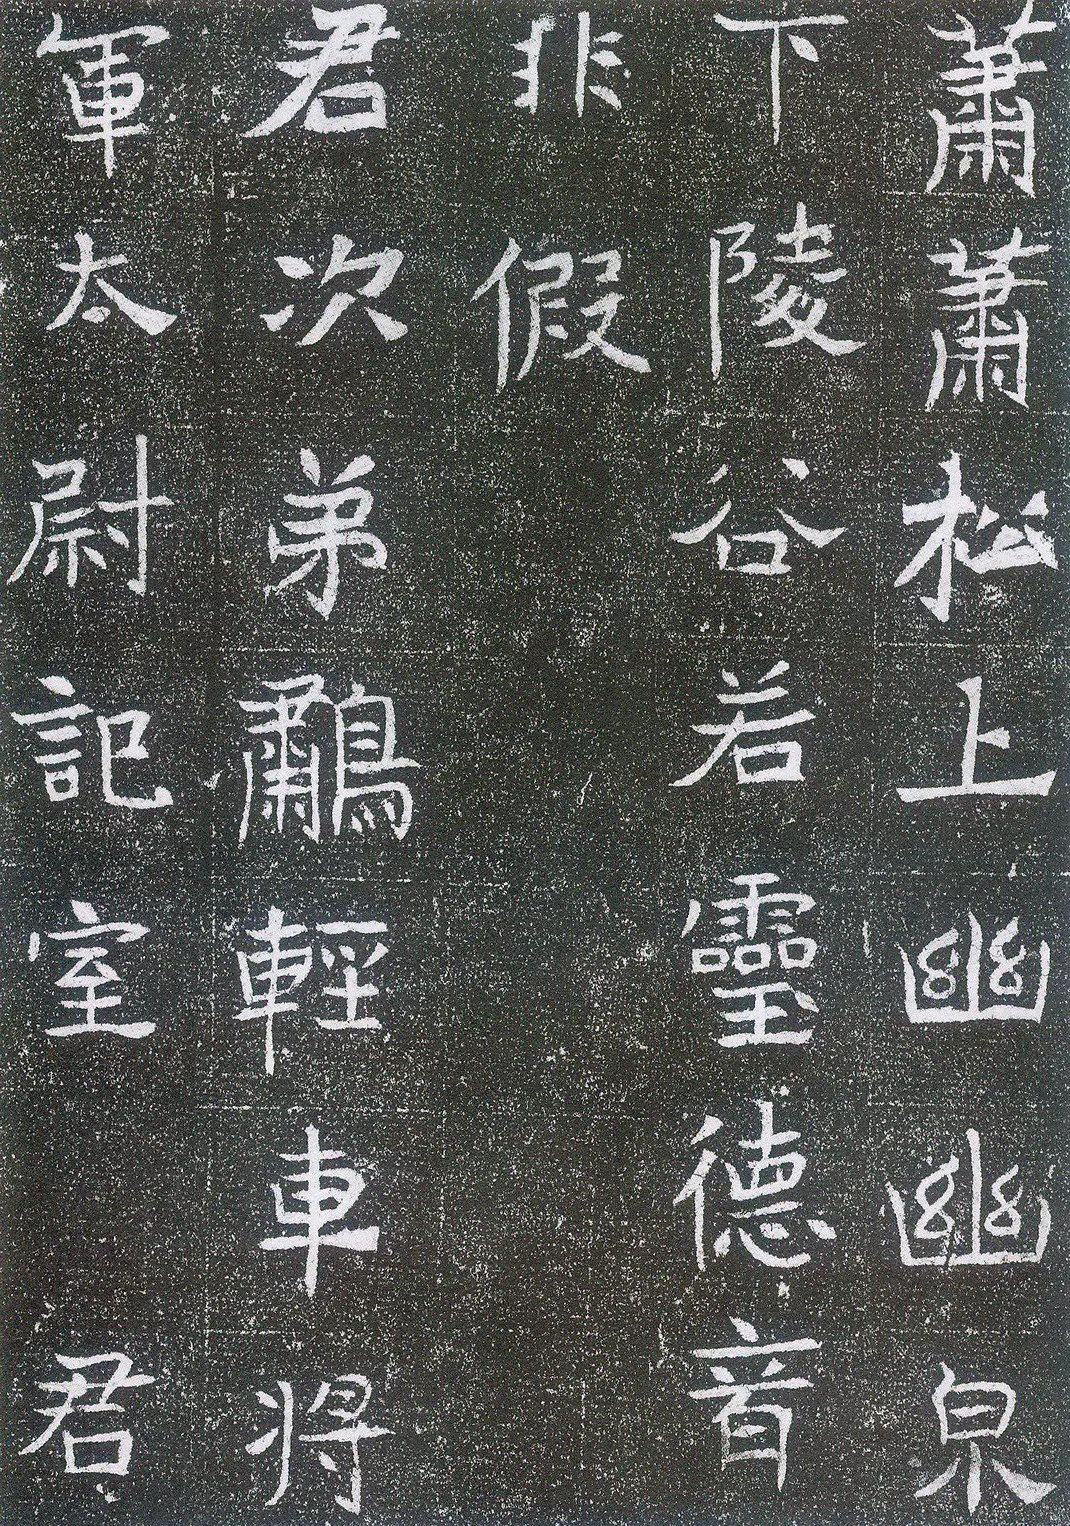 蕭蕭松上幽幽泉
下陵谷若靈德音
非假
君次弟鷫輕車將
軍太尉記室君